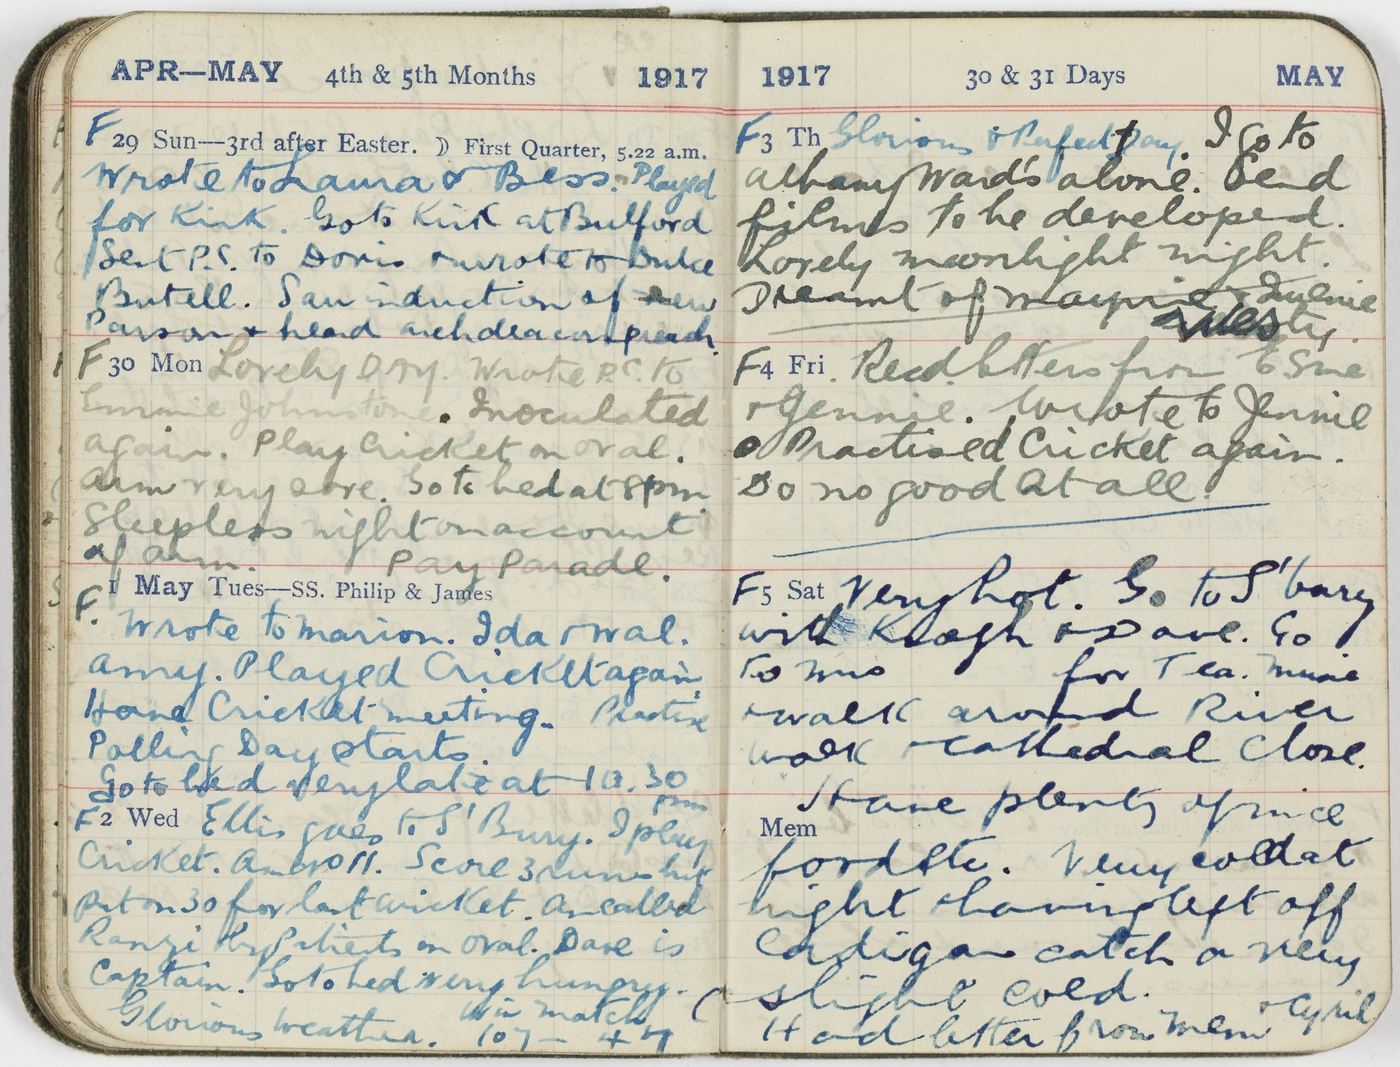 APR—MAY 4th & 5th Months 1917
F 29 Sun—3rd after Easter. ☽ First Quarter, 5.22 a.m.
Wrote to Laura & Bess. Played
for Kirk. Go to Kirk at Bulford
Sent P.C. to Doris & wrote to Dulce
Butell. Saw induction of new
Parson & heard archdeacon preach.
F 30 Mon Lovely Day. Wrote P.C. to
Emmie Johnstone. Inoculated
again. Play Cricket on oval.
Arm very sore. Go to bed at 8pm
Sleepless night on account
of arm. Pay Parade.
F. 1 May Tues—SS. Philip & James
Wrote to Marion. Ida & Wal.
Amy. Played Cricket again.
Have Cricket meeting. Practise
Polling Day starts.
Go to bed very late at 10.30
pm
F 2 Wed Ellis goes to S'Bury. I play
Cricket. Am 11. Score 3 runs but
put on 30 for last wicket. Am called
Ranji by patients on oval. Dave is
Captain. Go to bed very hungry.
Glorious weather. Win match
107 — 47
1917 30 & 31 Days MAY
F 3 Th Glorious & Perfect Day. I go to
Albany Ward's alone. Send
films to be developed.
Lovely moonlight night.
Dreamt of &
F 4 Fri. Recd. letters from Esme
& Jennie. Wrote to Jennie
Practised Cricket again.
Do no good at all.
F 5 Sat Very hot. Go to S'bury
with Keogh & Dave. Go
to Mrs for Tea. Music
& walk around River
walk & Cathedral Close.
Have plenty of nice
Mem
food etc. Very cold at
night & having left off
Cardigan catch a very
slight cold.
Had letter from Mem & Cyril